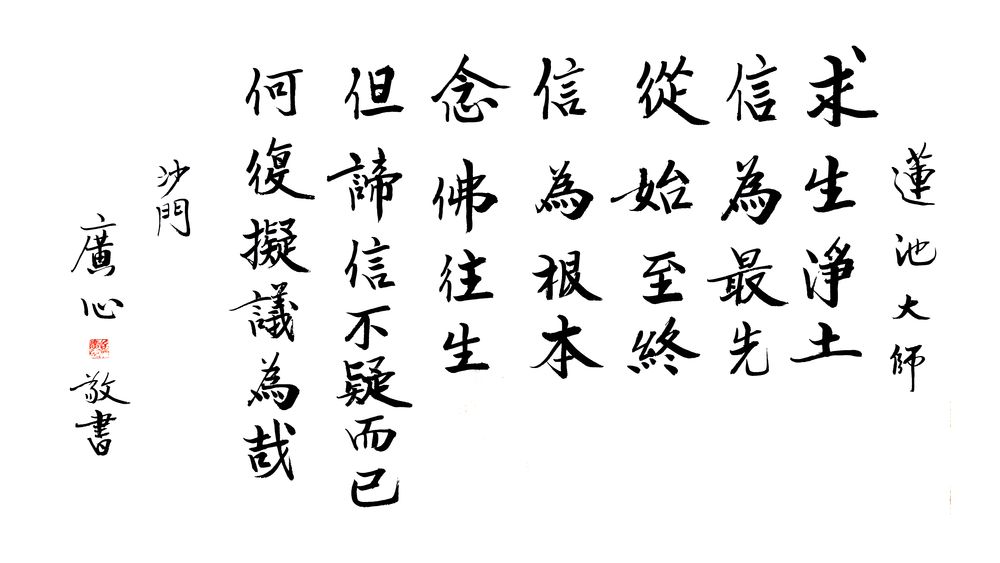 蓮池大師
求生淨土
信為最先
從始至終
信為根本
念佛往生
但諦信不疑而已
何復擬議為哉
沙門
廣心
敬書